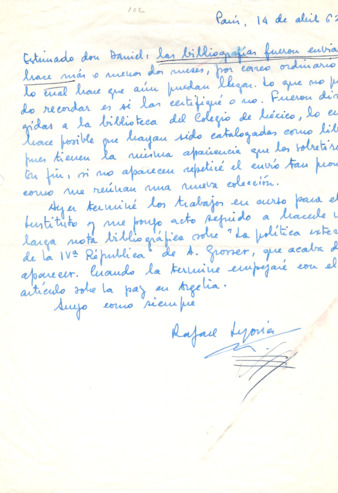 102
París, 14 de abril 62
Estimado don Daniel: las bibliografías fueron envia
hace más o menos dos meses, por correo ordinario
lo cual hace que aún puedan llegar. Lo que no p
do recordar es si las certifiqué o no. Fueron diri
gidas a la biblioteca del Colegio de México, lo cu
hace posible que hayan sido catalogadas como lib
pues tienen la misma apariencia que los
En fin, si no aparecen repetiré el envío tan pron
como me reúnan una nueva colección.
Ayer terminé los trabajos en curso para el
Instituto y me pongo acto seguido a hacerle u
larga nota bibliográfica sobre "La política exte
de la IVª República" de A. Grosser, que acaba d
aparecer. Cuando la termine empezaré con el
artículo sobre la paz en Argelia.
Suyo como siempre
Rafael Segovia